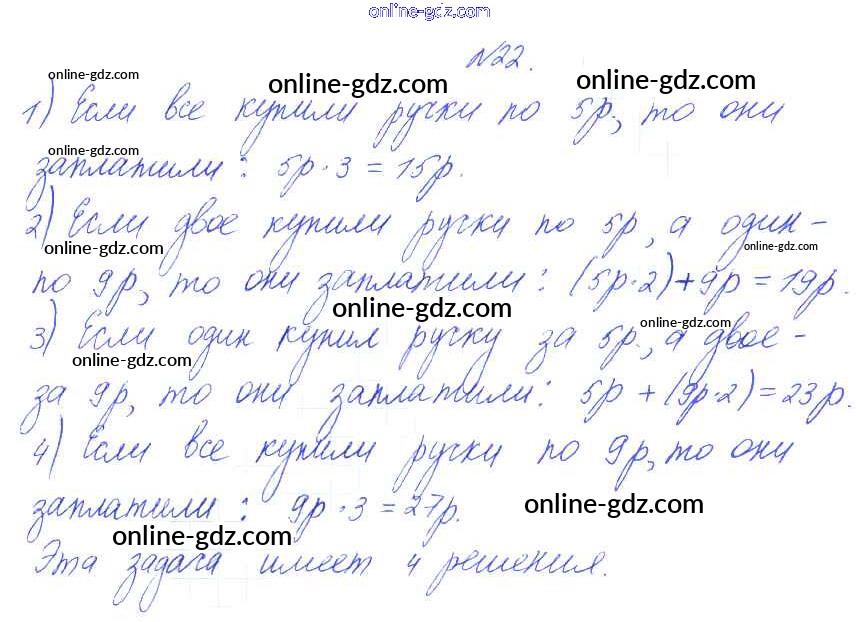 online-gdz.com
№22.
online-gdz.com online-gdz.com online-gdz.com
1) Если все купили ручки по 5р, то они
online-gdz.com
заплатили: 5р·3 = 15р.
2) Если двое купили ручки по 5р, а один -
online-gdz.com online-gdz.com
по 9р, то они заплатили: (5р·2)+9р = 19р.
online-gdz.com
3) Если один купил ручку за 5р., а двое -
online-gdz.com online-gdz.com
за 9р, то они заплатили: 5р + (9р·2) = 23р.
4) Если все купили ручки по 9р, то они
заплатили: 9р·3 = 27р.
online-gdz.com online-gdz.com
Эта задача имеет 4 решения.